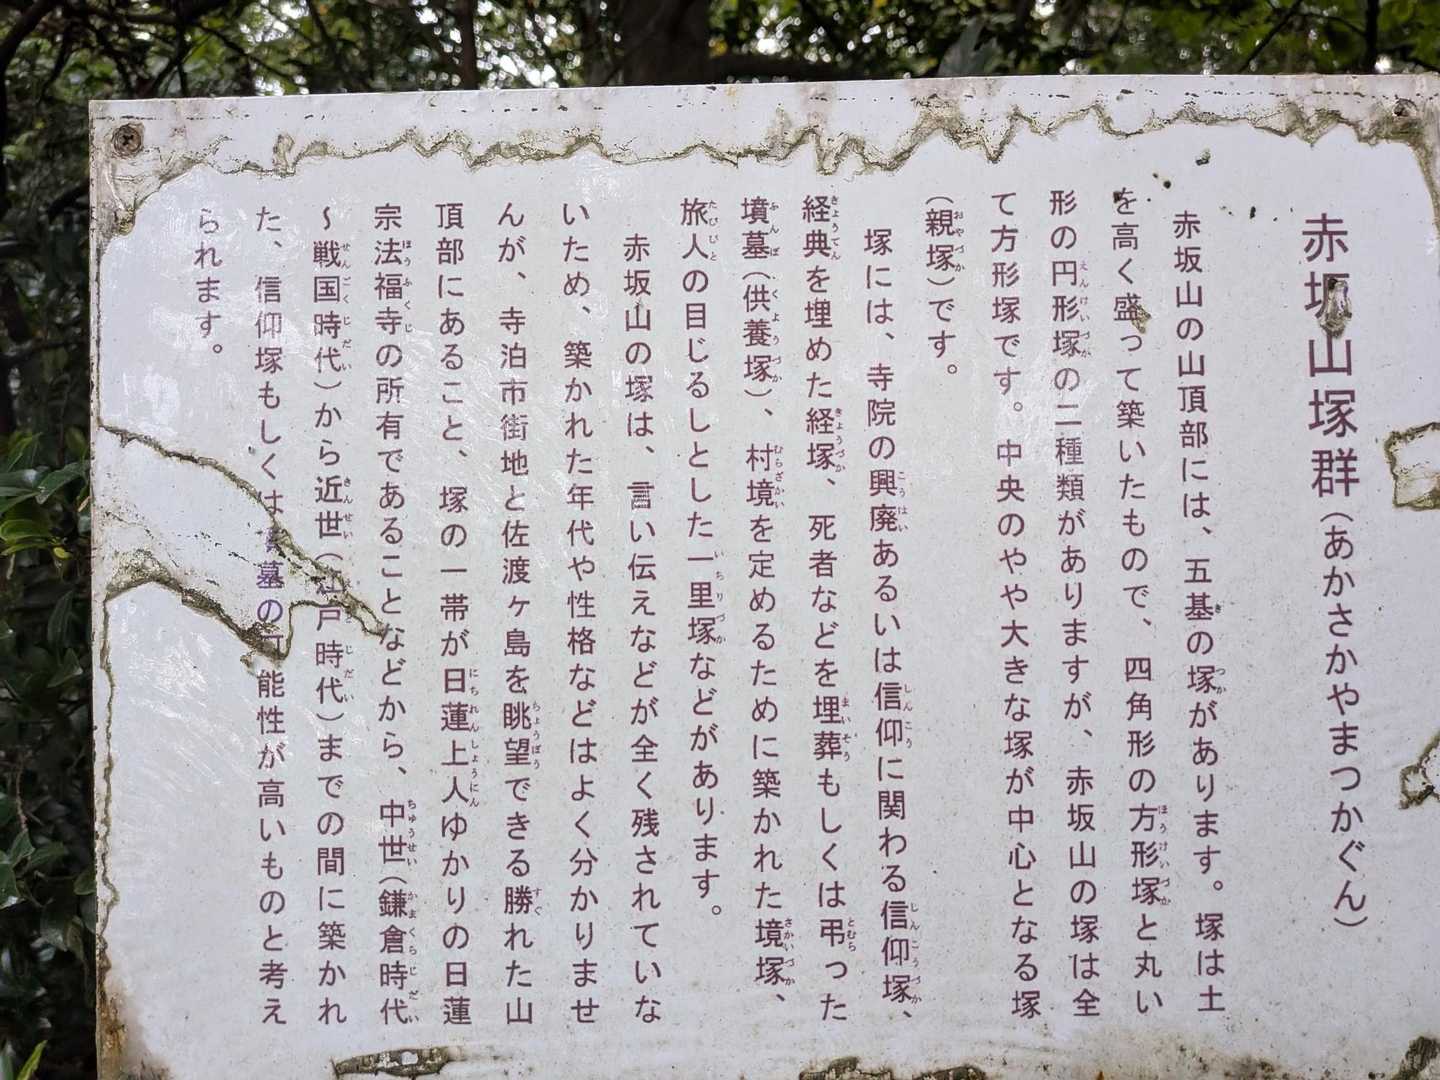 赤坂山塚群（あかさかやまつかぐん）
赤坂山の山頂部には、五基の塚があります。塚は土
を高く盛って築いたもので、四角形の方形塚と丸い
形の円形塚の二種類がありますが、赤坂山の塚は全
て方形塚です。中央のやや大きな塚が中心となる塚
（親塚）です。
塚には、寺院の興廃あるいは信仰に関わる信仰塚、
経典を埋めた経塚、死者などを埋葬もしくは弔った
墳墓（供養塚）、村境を定めるために築かれた境塚、
旅人の目じるしとした一里塚などがあります。
赤坂山の塚は、言い伝えなどが全く残されていな
いため、築かれた年代や性格などはよく分かりませ
んが、寺泊市街地と佐渡ヶ島を眺望できる勝れた山
頂部にあること、塚の一帯が日蓮上人ゆかりの日蓮
宗法福寺の所有であることなどから、中世（鎌倉時代
～戦国時代）から近世（江戸時代）までの間に築かれ
た、信仰塚もしくは墓の可能性が高いものと考え
られます。